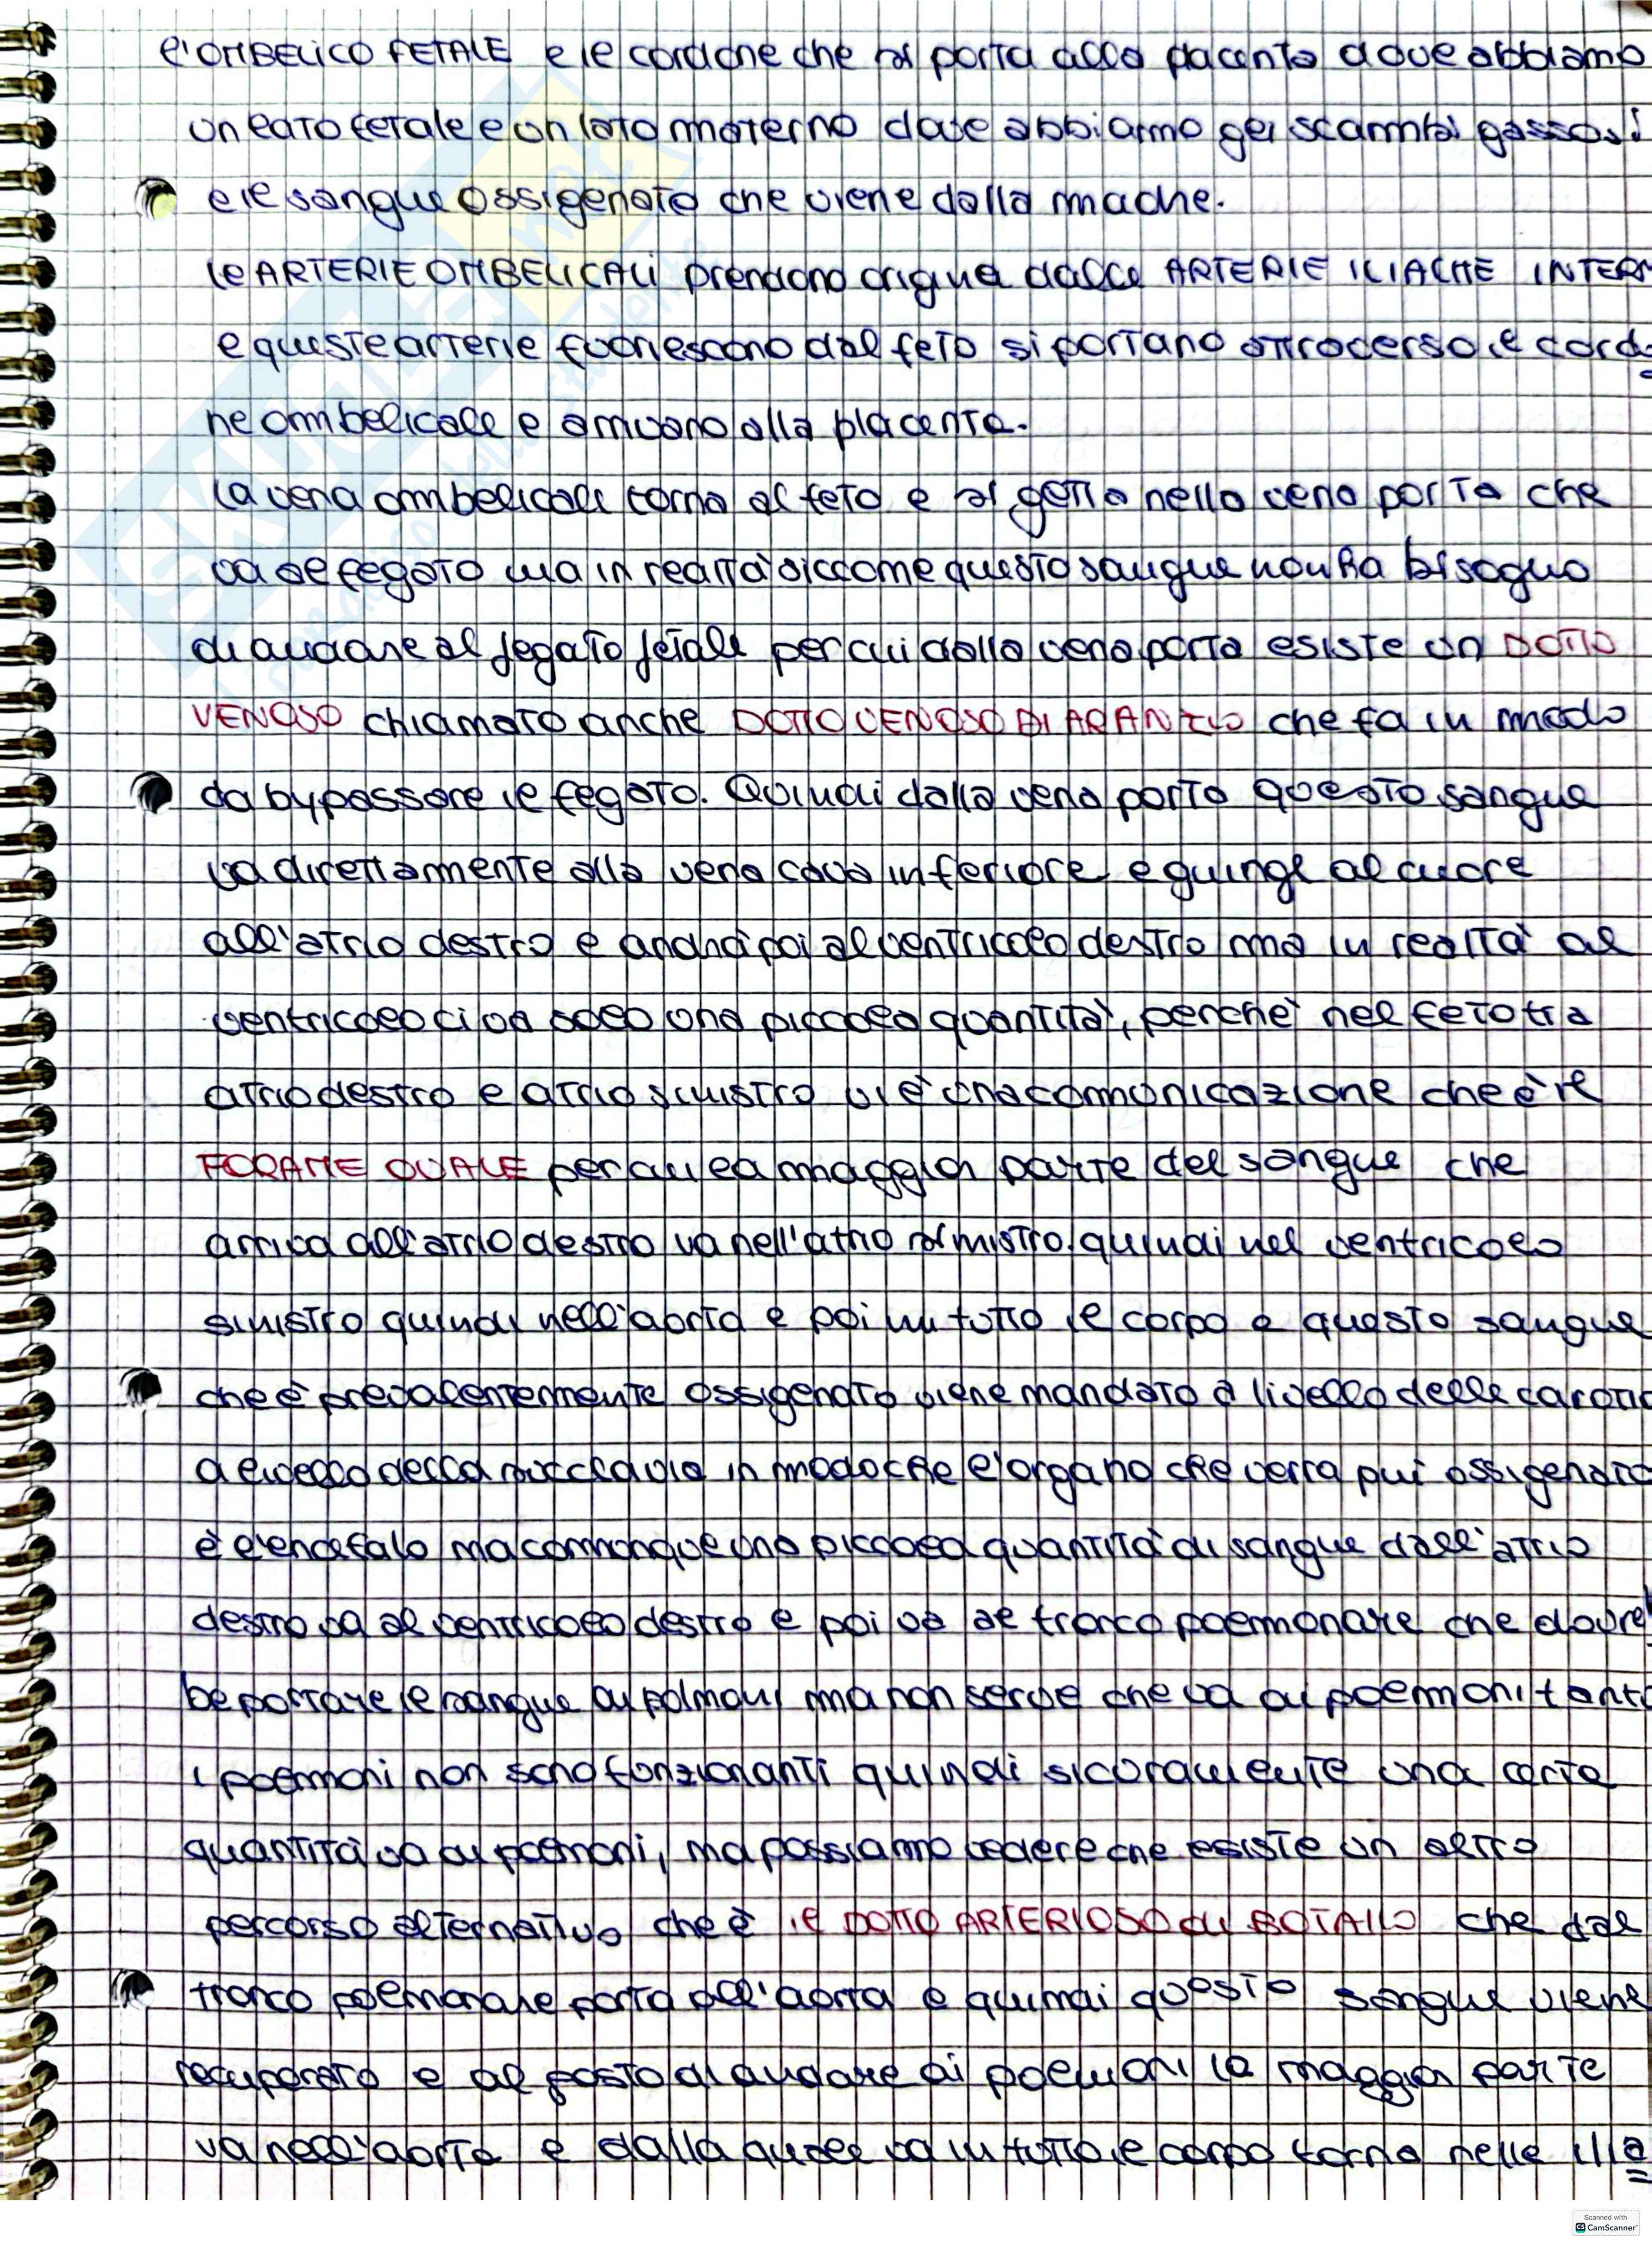 l'OMBELICO FETALE e il cordone che si porta alla placenta dove abbiamo
un lato fetale e un lato materno dove abbiamo gli scambi gassosi
e il sangue ossigenato che viene dalla madre.
le ARTERIE OMBELICALI prendono origine dalle ARTERIE ILIACHE INTERN
e queste arterie fuoriescono dal feto si portano attraverso il cordo
ne ombelicale e arrivano alla placenta.
la vena ombelicale torna al feto e si getta nella vena porta che
va al fegato ma in realtà siccome questo sangue non ha bisogno
di andare al fegato fetale per cui dalla vena porta esiste un DOTTO
VENOSO chiamato anche DOTTO VENOSO DI ARANZIO che fa in modo
da bypassare il fegato. Quindi dalla vena porta questo sangue
va direttamente alla vena cava inferiore e giunge al cuore
all'atrio destro e andrà poi al ventricolo destro ma in realtà al
ventricolo ci va solo una piccola quantità, perchè nel feto tra
atrio destro e atrio sinistro vi è una comunicazione che è il
FORAME OVALE per cui la maggior parte del sangue che
arriva all'atrio destro va nell'atrio sinistro. quindi nel ventricolo
sinistro quindi nell'aorta e poi in tutto il corpo e questo sangue
che è prevalentemente ossigenato viene mandato a livello delle carotid
a livello della succlavia in modo che l'organo che verra più ossigenato
è l'encefalo ma comunque una piccola quantità di sangue dall'atrio
destro va al ventricolo destro e poi va al tronco polmonare che dovreb
be portare il sangue ai polmoni ma non serve che va ai polmoni tanto
i polmoni non sono funzionanti quindi sicuramente una certa
quantità va ai polmoni, ma possiamo vedere che esiste un altro
percorso alternativo che è il DOTTO ARTERIOSO di BOTALLO che dal
tronco polmonare porta all'aorta e quindi questo sangue viene
recuperato e al posto di andare ai polmoni la maggior parte
va nell'aorta e dalla quale va in tutto il corpo torna nelle ilia
SKUOLA.net
il paradiso dello studente
Scanned with
CS CamScanner